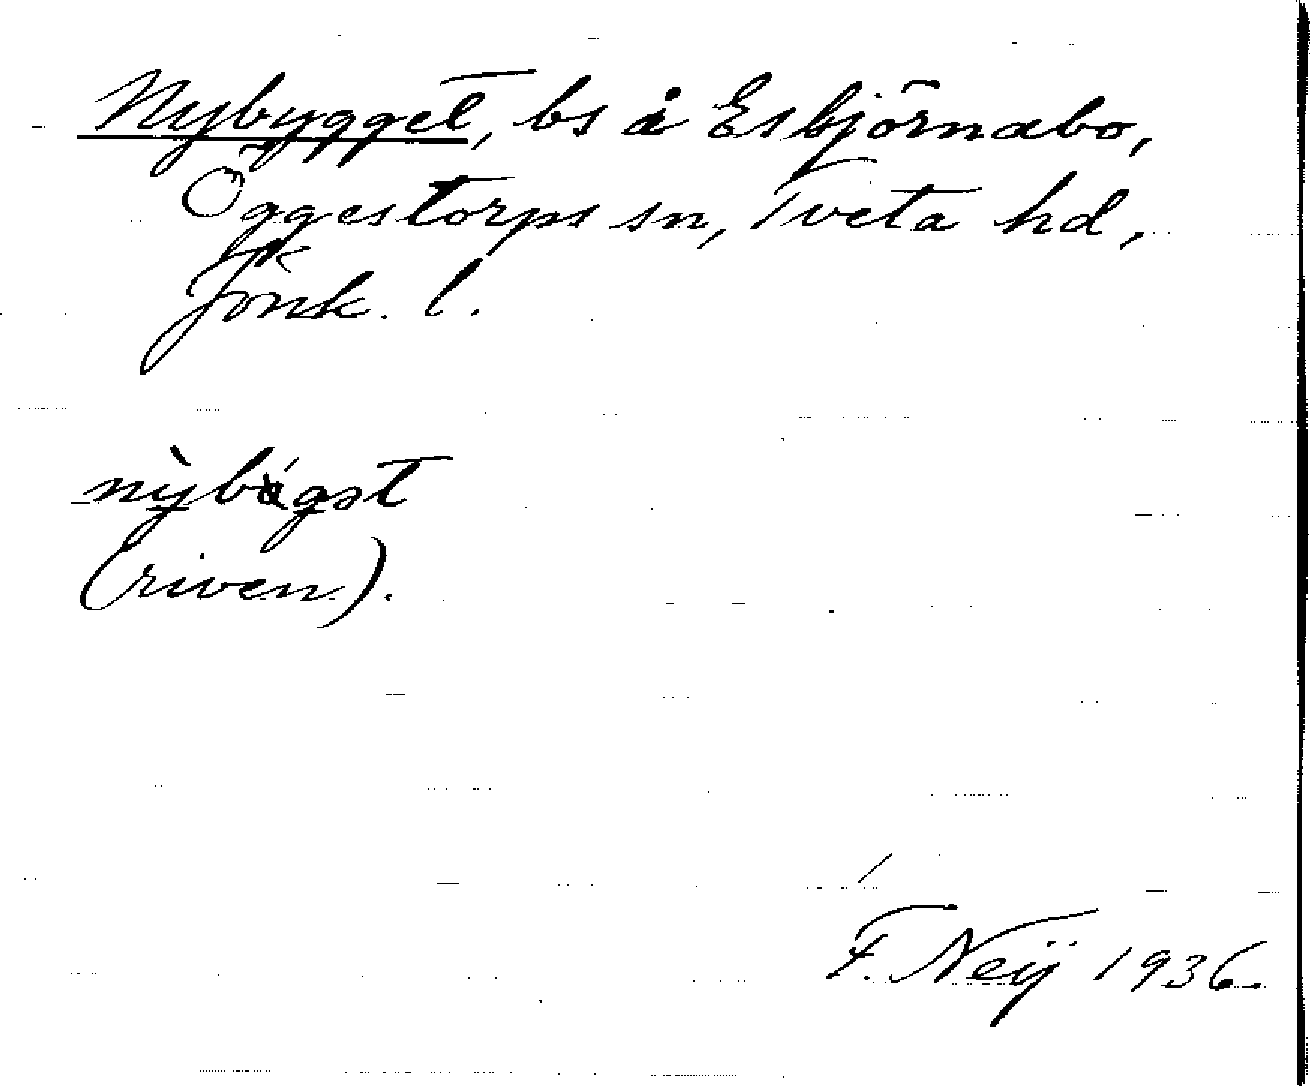 Nybygget, bs å Esbjörnabo,
Öggestorps sn, Tveta hd,
Jönk. l.
(riven).
F. Neij 1936.